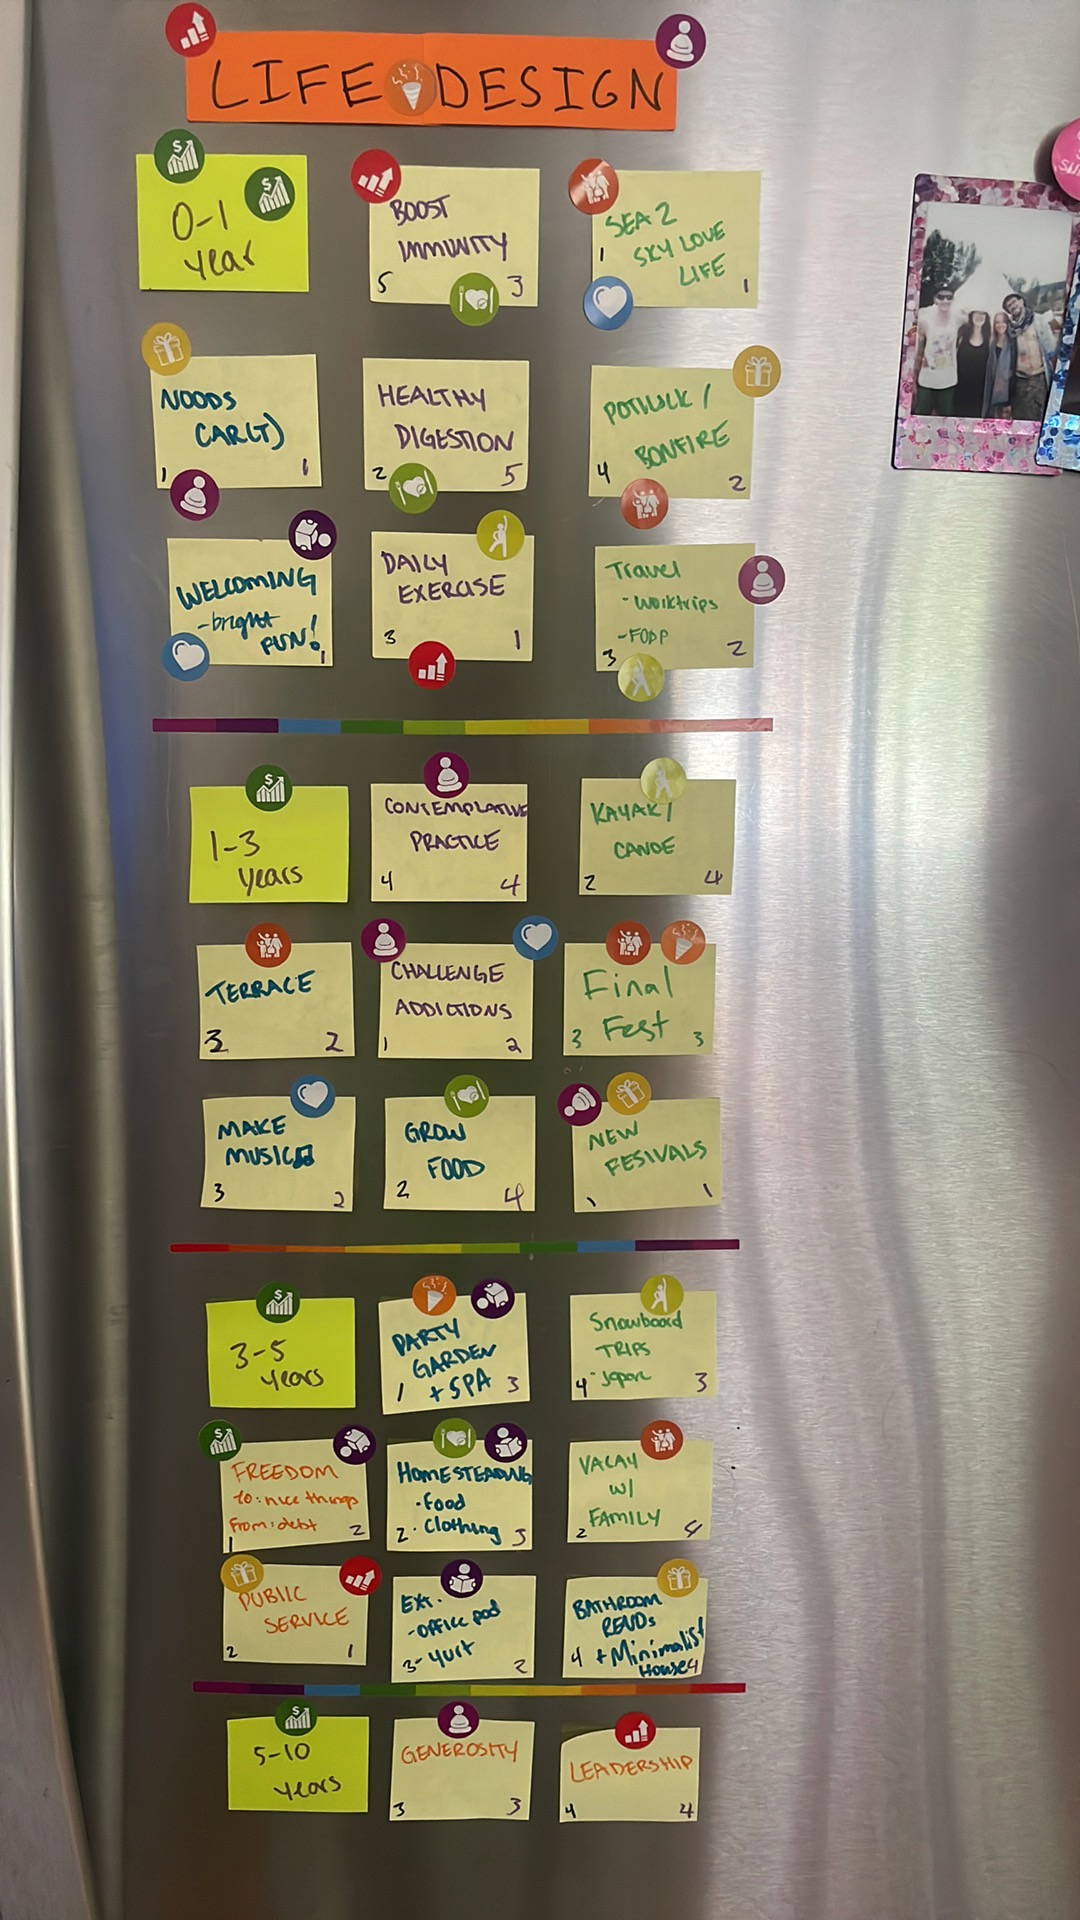 LIFE DESIGN
0-1
year
BOOST
IMMUNITY
5 3
SEA 2
SKY LOVE
LIFE
1 1
NOODS
CAR(T)
1 1
HEALTHY
DIGESTION
2 5
POTLUCK /
BONFIRE
4 2
WELCOMING
-bright
FUN!
1
DAILY
EXERCISE
3 1
Travel
- Worktrips
- FODP
3 2
1-3
years
CONTEMPLATIVE
PRACTICE
4 4
KAYAK/
CANOE
2 4
TERRACE
3 2
CHALLENGE
ADDICTIONS
1 2
Final
Fest
3 3
MAKE
MUSIC
3 2
GROW
FOOD
2 4
NEW
FESIVALS
1 1
3-5
years
PARTY
GARDEN
+ SPA
1 3
Snowboard
TRIPS
- Japan
4 3
FREEDOM
to: nice things
from: debt
1 2
HOMESTEADING
· Food
· Clothing
2 3
VACAY
W/
FAMILY
2 4
PUBLIC
SERVICE
2 1
EXT.
- OFFICE pod
- yurt
3 2
BATHROOM
RENOs
+ Minimalist
House
4 4
5-10
years
GENEROSITY
3 3
LEADERSHIP
4 4